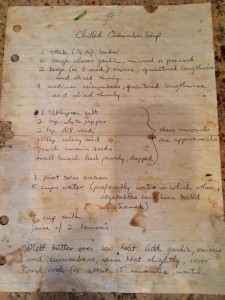 Chilled Cucumber Soup
1 stick (¼ lb) butter
6 large cloves garlic, minced or pressed
2 large (or 3 med) onions, quartered lengthwise
and sliced thinly
4 medium cucumbers, quartered lengthwise
and sliced thinly
1 tablespoon salt
2 tsp white pepper
2 tsp dill weed
1 tsp celery seed
pinch cumin seeds
small bunch fresh parsley, chopped
these amounts
are approximate
1 pint sour cream
5 cups water (preferably water in which other
vegetables have been boiled
or steamed)
cup milk
juice of 2 lemons
Melt butter over low heat. Add garlic, onions
and cucumbers, raise heat slightly, cover
and cook for about 15 minutes, until